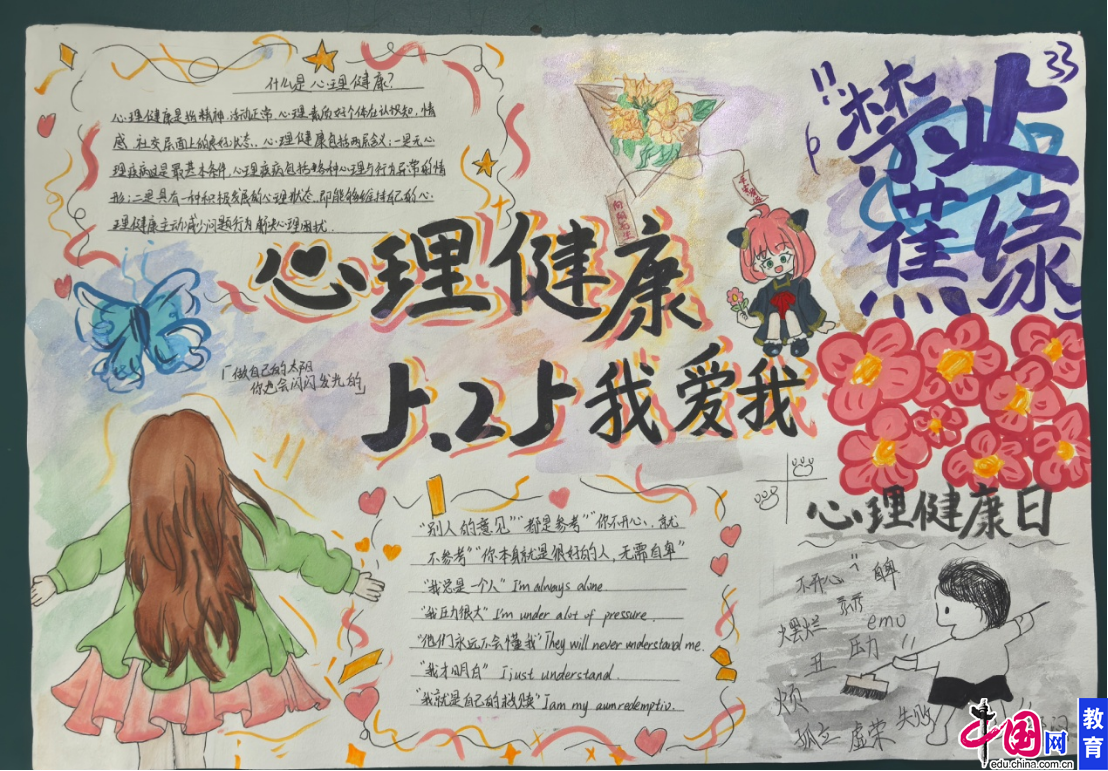 什么是心理健康?
心理健康是指精神、活动正常、心理素质好个体在认识知,情
感、社交层面上的良好状态。心理健康包括两层含义:一是无心
理疾病这是最基本条件,心理疾病包括各种心理与行为异常的情
形;二是具有一种积极发展的心理状态,即能够维持自己的心
理健康主动减少问题行为解决心理困扰.
禁止
蕉绿
33
心理健康
5.25我爱我
「做自己的太阳
你也会闪闪发光的」
"别人的意见""都是参考""你不开心,就
不参考""你本身就是很好的人,无需自卑"
"我总是一个人" I'm always alone.
"我压力很大" I'm under alot of pressure.
"他们永远不会懂我" They will never understand me.
"我才明白" I just understand.
"我就是自己的救赎" I am my aumredemptio.
心理健康日
不开心 自卑
摆烂 emo
丑 压力
烦
孤立 虚荣 失败
中国网
edu.china.com.cn
教育